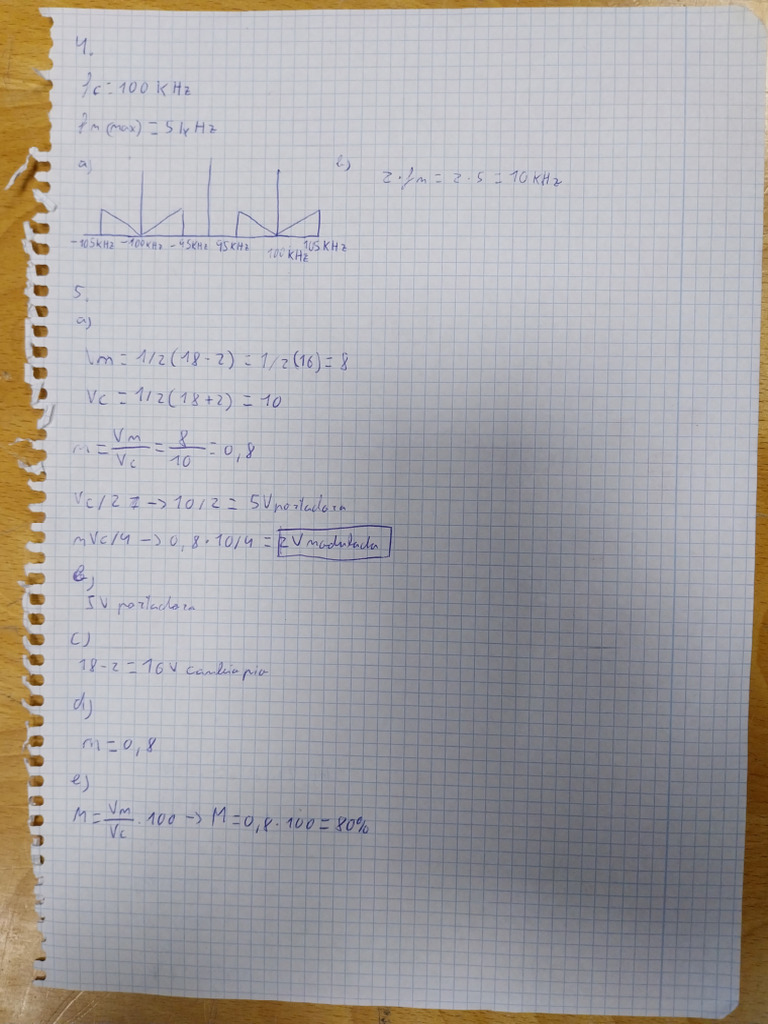 4.
fc = 100 KHz
fm (max) = 5 KHz
a)
-105KHz -100KHz -95KHz 95KHz 100KHz 105KHz
b)
2·fm = 2·5 = 10 KHz
5.
a)
Vm = 1/2(18-2) = 1/2(16) = 8
Vc = 1/2(18+2) = 10
m = Vm/Vc = 8/10 = 0,8
Vc/2 -> 10/2 = 5V portadora
mVc/4 -> 0,8·10/4 = 2V modulada
b)
5V portadora
c)
18-2 = 16V cambio pio
d)
m = 0,8
e)
M = Vm/Vc · 100 -> M = 0,8·100 = 80%